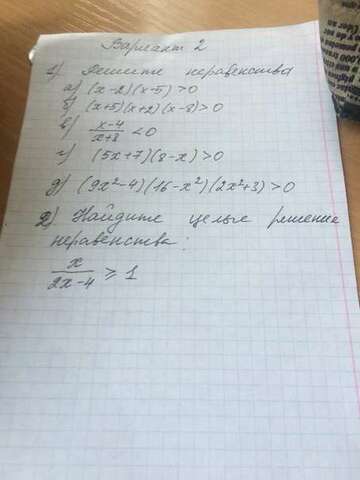 Вариант 2
1) Решите неравенства
а) (x-2)(x-5)>0
б) (x+5)(x+2)(x-8)>0
в) \frac{x-4}{x+8}<0
г) (5x+7)(8-x)>0
д) (9x²-4)(16-x²)(2x²+3)>0
2) Найдите целые решение
неравенства:
\frac{x}{2x-4} ⩾ 1